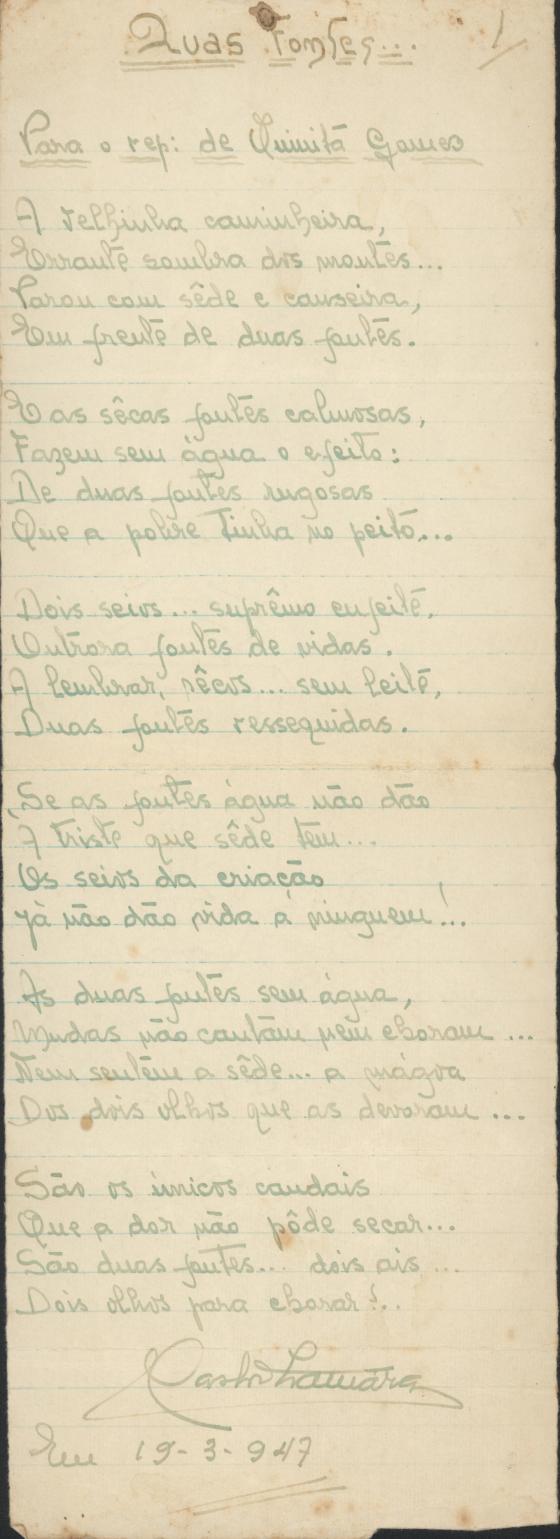 Duas Fontes... 1
Para o rep: de Quinitá Gomes
A velhinha caminheira,
Errante sombra dos montes...
Parou com sêde e canseira,
Em frente de duas fontes.
E as sêcas fontes calmosas,
Fazem sem água o efeito:
De duas fontes rugosas
Que a pobre tinha no peito...
Dois seios... suprêmo enfeite,
Outrora fontes de vidas.
A lembrar, sêcos... sem leite,
Duas fontes ressequidas.
Se as fontes água não dão
Á triste que sêde tem...
Os seios da criação
Já não dão vida á ninguem!..
As duas fontes sem água,
Mudas não cantam nem choram...
Nem sentem a sêde... a mágoa
Dos dois olhos que as devoram...
São os únicos caudais
Que a dor não pôde secar...
São duas fontes... dois ais...
Dois olhos para chorar!..
Em 19-3-947